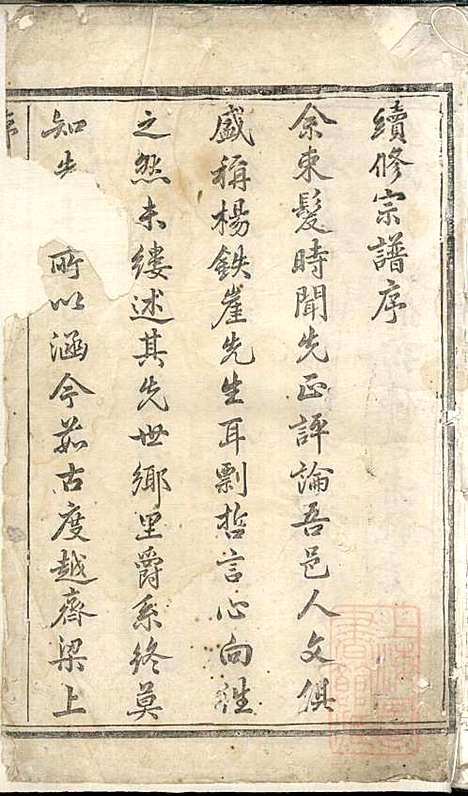 續修宗譜序
余束髮時聞先正評論吾邑人文俱
盛稱楊鉄崖先生耳剽哲言心向徃
之然未縷述其先世鄉里爵系終莫
知先 所以涵今茹古度越齊梁上